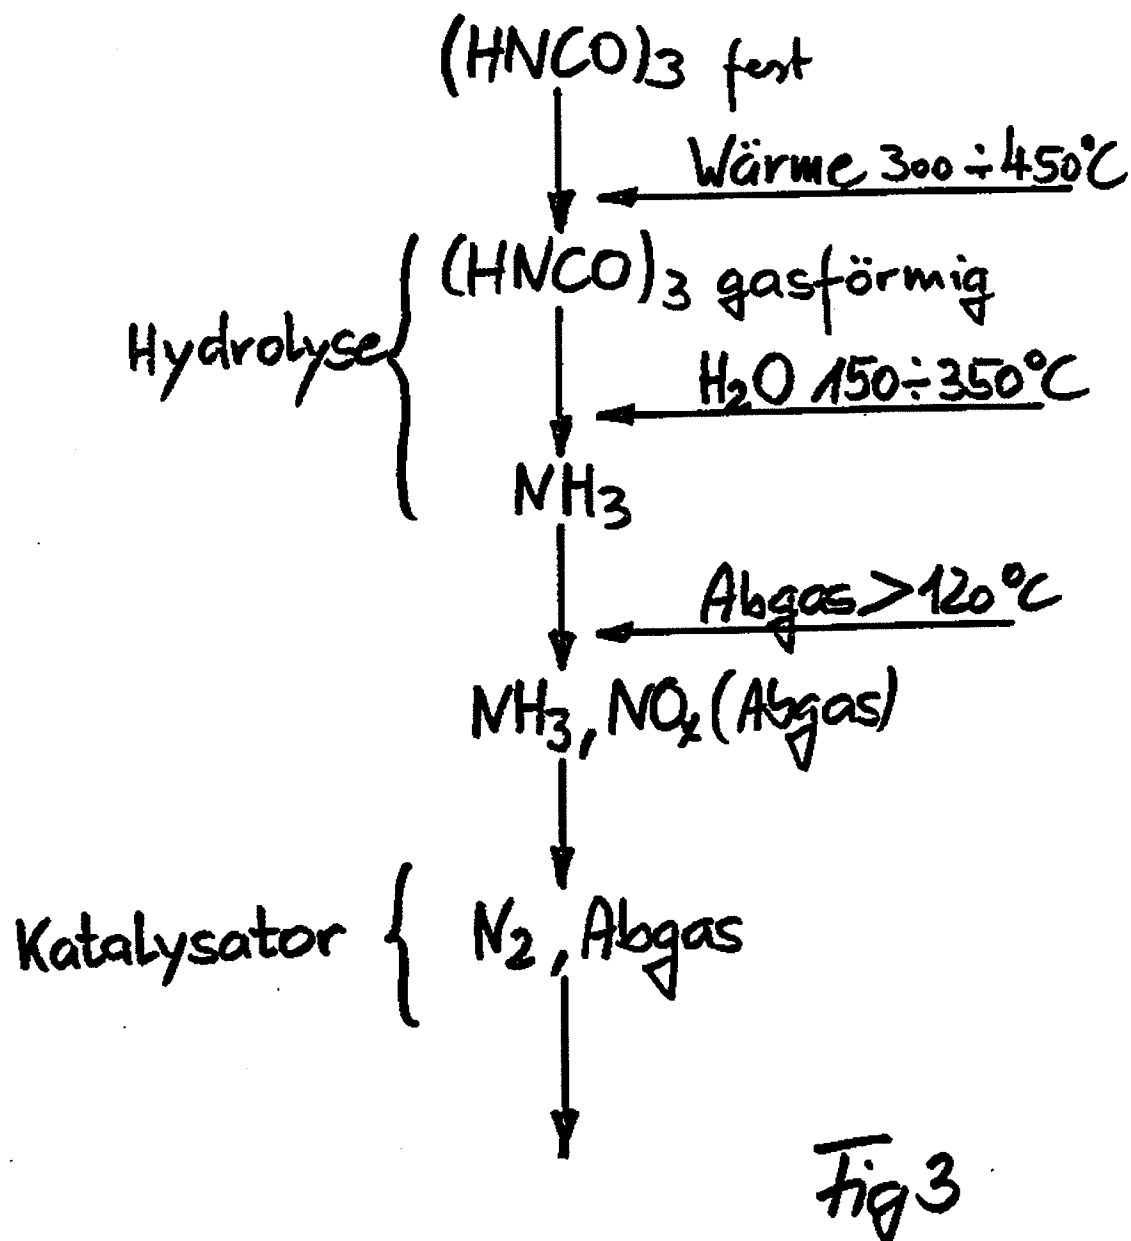 (HNCO)3 fest
Wärme 300÷450°C
(HNCO)3 gasförmig
Hydrolyse
H2O 150÷350°C
NH3
Abgas>120°C
NH3, NOx (Abgas)
Katalysator
N2, Abgas
Fig 3